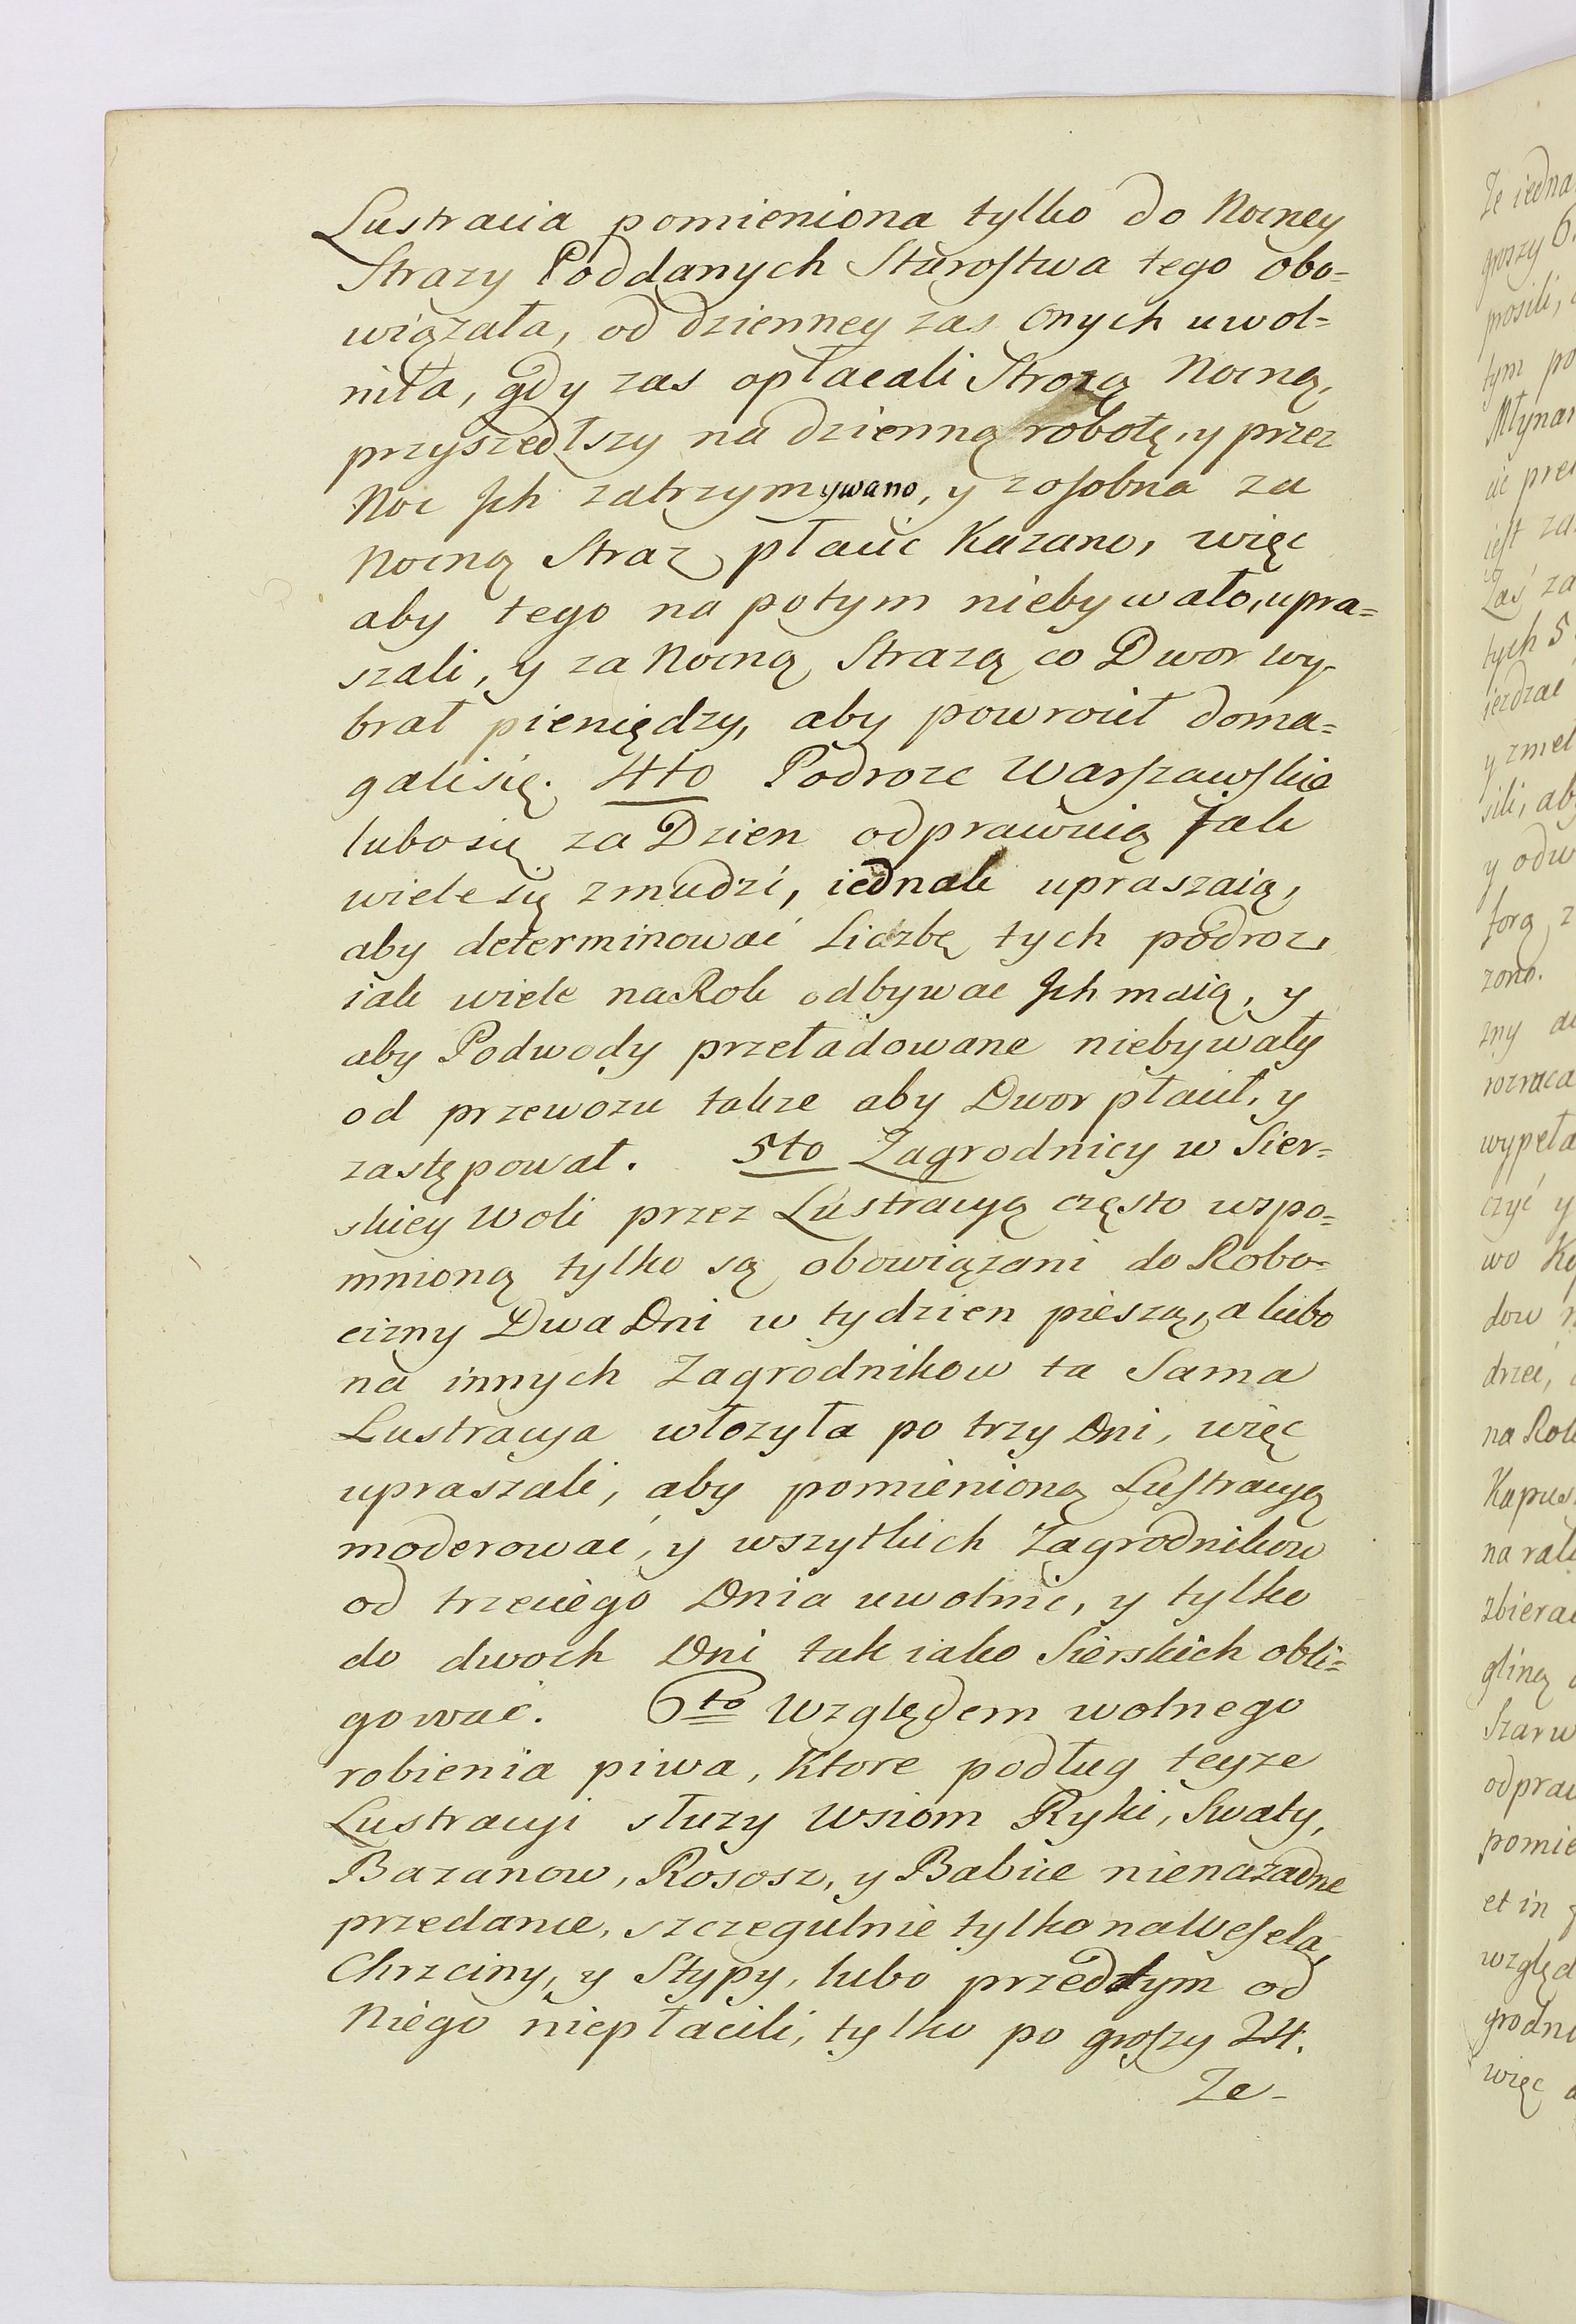 Lustracia pomieniona tylko do Nocney
Strazy Poddanych Starostwa tego obo=
wiązała, od dzienney zas onych uwol=
niła, gdy zas opłacali Strozą Nocną,
przyszedłszy na dzienną robotę, y przez
Noc Jch zatrzymywano, y zosobna za
Nocną Straz płacic Kazano, więc
aby tego na potym niebywało, upra=
szali, y za Nocną Strazą co Dwor wy-
brał pieniędzy, aby powrocił doma=
galisię. 4to Podroze Warszawskie
lubosię za Dzien odprawuią Jak
wiele się zmudzi, iednak upraszaią,
aby determinować Liczbę tych podroz,
iak wiele na Rok odbywac Jch maią, y
aby Podwody przeładowane niebywały
od przewozu takze aby Dwor płacił, y
zastępował. 5to Zagrodnicy w Sier=
skiey Woli przez Lustracyą często wspo=
mnioną tylko są obowiązani do Robo=
cizny Dwa Dni w tydzien pieszą, a lubo
na innych Zagrodnikow ta Sama
Lustracya włozyła po trzy Dni, więc
upraszali, aby pomienioną Lustracyą
moderować, y wszytkich Zagrodnikow
od trzeciego Dnia uwolnic, y tylko
do dwoch Dni tak iako Sierskich obli=
gować. 6to Względem wolnego
robienia piwa, Ktore podług teyze
Lustracyi słuzy Wsiom Ryki, Swaty,
Bazanow, Rososz, y Babice nienazadne
przedanie, szczegulnie tylko na Wesela,
Chrzciny, y Stypy, lubo przedtym od
Niego niepłacili, tylko po groszy 24.
Ze-
Ze iedna
groszy 6.
prosili,
tym po
Młynar
iest za
Zaś za
tych 5
iezdzać
y zmel
sili, ab
y odw
forą z
zono.
zny
rozraca
wypeła
czyć y
wo
dow
drzeć,
na Rok
Kapus
na
zbierac
gliną
Szarw
odpraw
pomie
et in
wzgled
grodni
więc